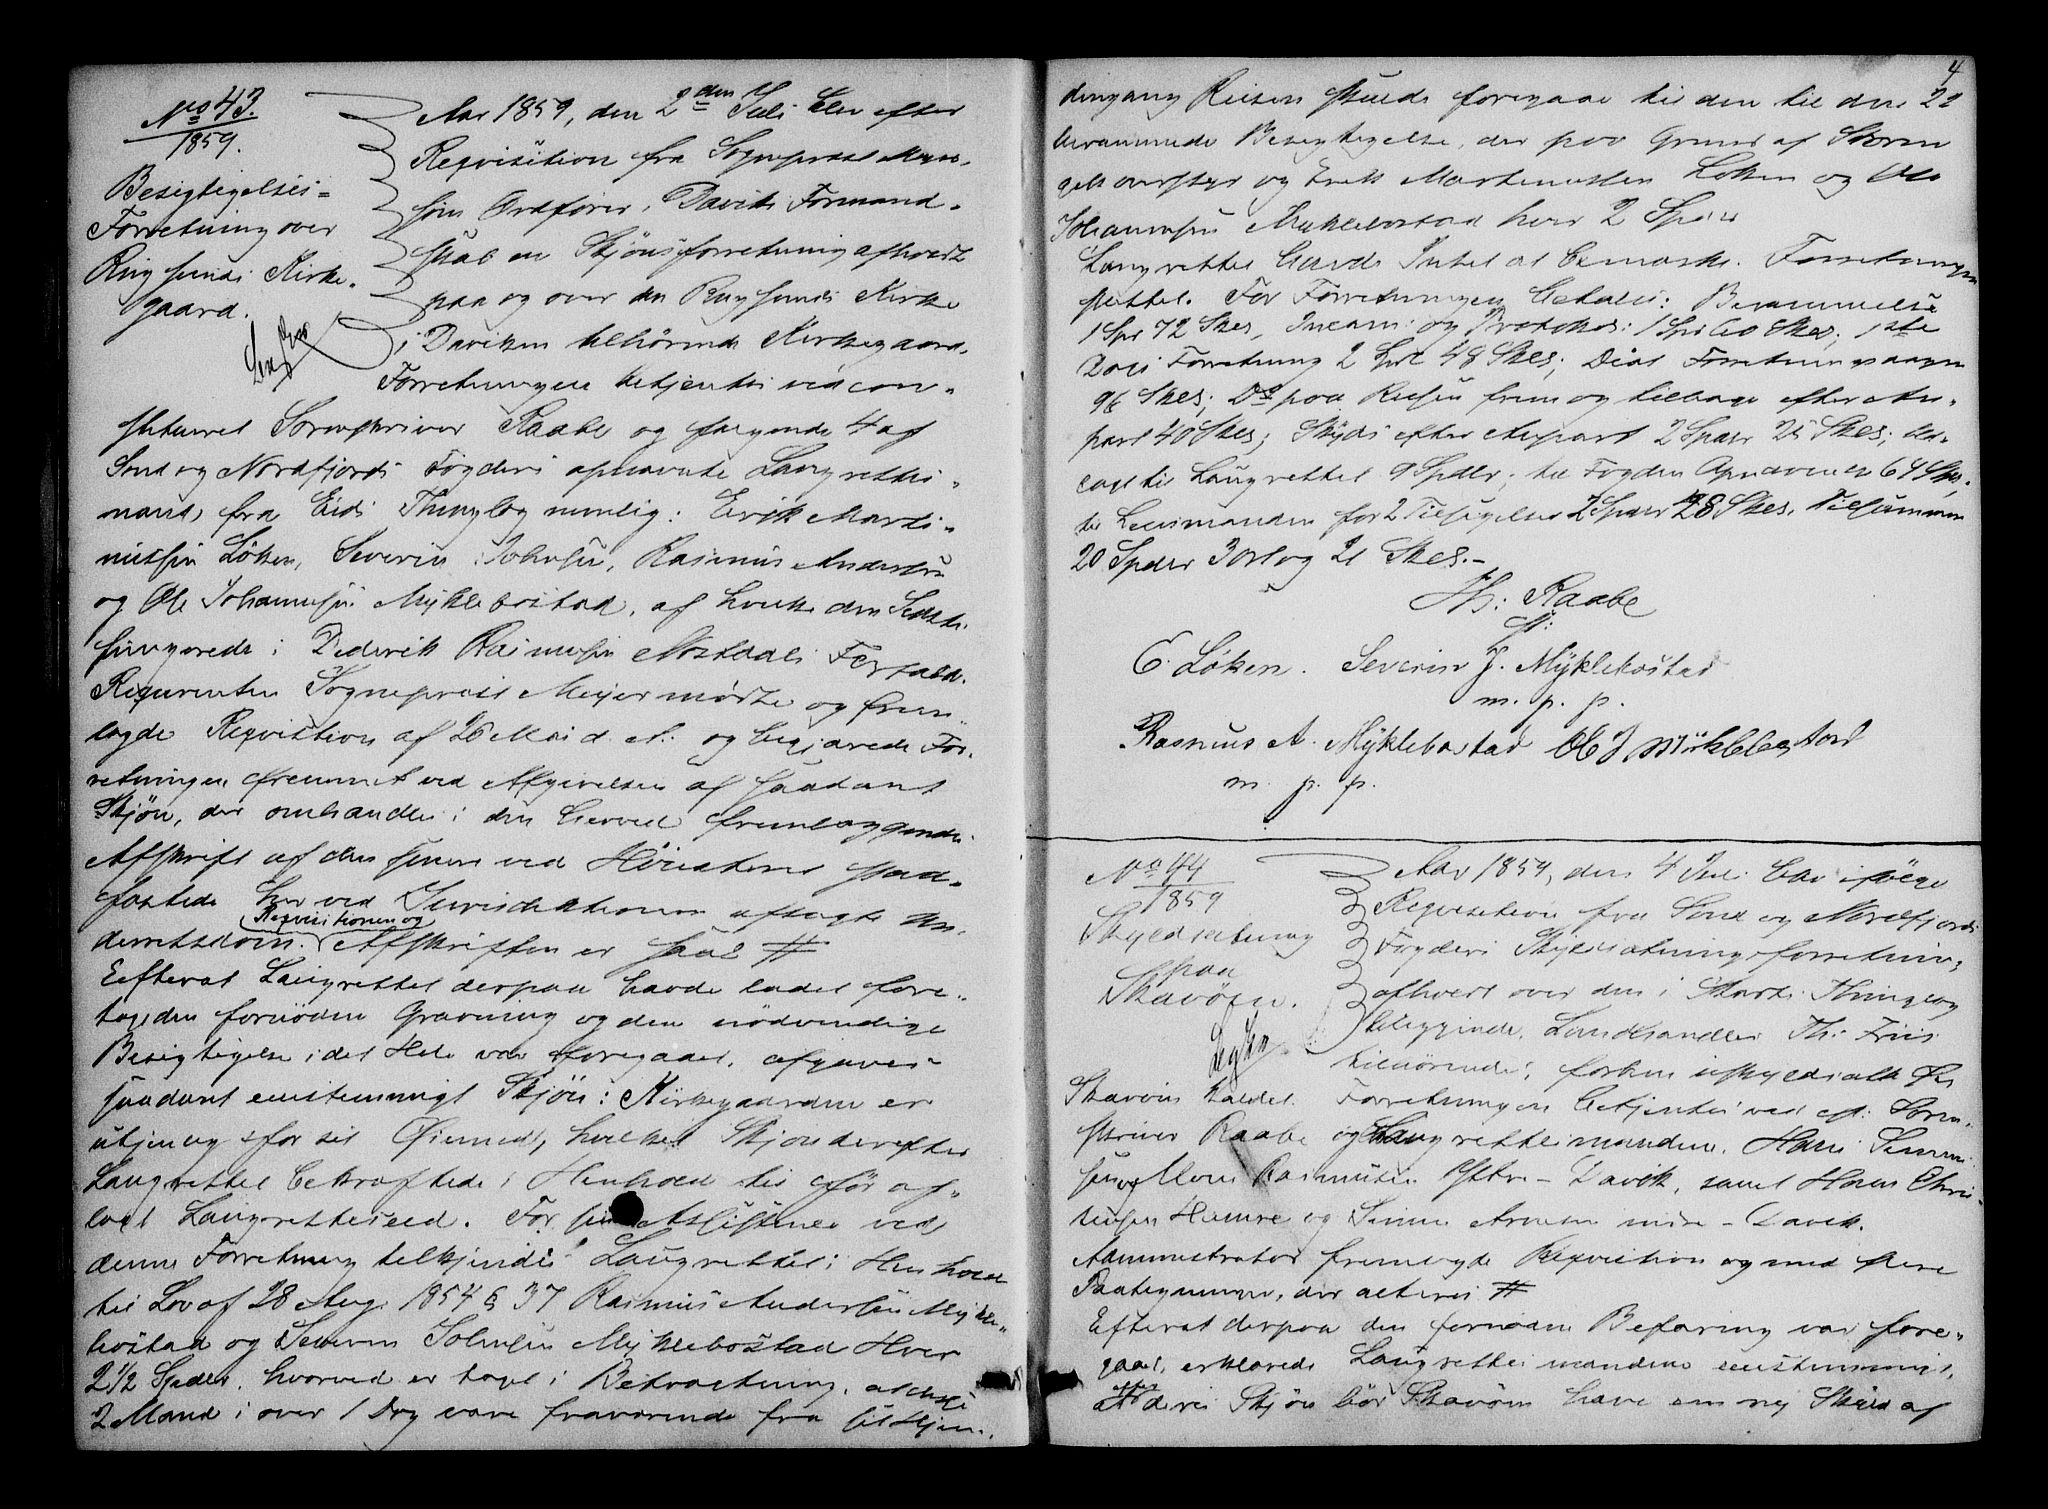 No 43.
1859.
Besigtigelses-
Forretning over
Rugsunds Kirke-
gaard.
Aar 1859, den 2den Juli blev efter
Reqvisition fra Sogneprest
som Ordfører i Davids Formand-
skab en Skjønsforretning afholdt
paa og over den Rugsunds Kirke
i Daviken tilhørende Kirkegaard.
Forretningen betjentes ved con-
stitueret Sorenskriver Raabe og følgende 4 af
Sønd og Nordfjords Fogderi opnævnte Laugrettes-
mænd, fra Eids Thinglag nemlig: Erik Marti-
nussen Løken, Severin Johnsen, Rasmus Andersen
og Ole Johannessen Myklebostad, af hvilke den Sidste
fungerede i Diderik Rasmussen Nøstdals Forfald.
Reqvirenten Sogneprest Meyer mødte og frem-
lagde Reqvisition af 26 Mai d. A. og begjærede For-
retningen fremmet ved Afgivelsen af saadant
Skjøn, der omhandles i den herved fremlæggende
Afskrift af den senere ved Høiesteret stad-
fæstede her ved Jurisdictionen afsagte Un-
derretsdom. Reqvisitionen og Afskriften er saal #
Efterat Laugrettet derpaa havde ladet fore-
tage den fornødne Gravning og den nødvendige
Besigtigelse i det Hele var foregaaet, afgaves
saadant eenstemmigt Skjøn: Kirkegaarden er
utjenlig for sit Øiemed, hvilket Skjøn derefter
Laugrettet bekræftede i Henhold til før af-
lagt Laugretteseed. For sin Assistence ved
denne Forretning tilkjendtes Laugrettet i Henhold
til Lov af 28 Aug. 1854 § 37 Rasmus Andersen Mykle-
bostad og Severin Johnsen Myklebostad Hver
2 1/2 Spdlr. hvorved er taget i Betragtning, at disse
2 Mænd i over 1 Dag vare fraværende fra sit Hjem,
4
dengang Reisen skulde foregaae til den til den 22
berammede Besigtigelse, der paa Grund af Storm
gik overstyr og Erik Martinussen Løken og Ole
Johannessen Myklebostad hver 2 Spdlr
Laugrettet havde Intet at bemærke. Forretningen
sluttet. For Forretningen betales: Berammelse
1 Spd 72 Skss, Incam: og Protokol: 1 Spd 60 Skss; 1ste
Dags Forretning 2 Spd 48 Skss; Diæt Forretningsdagen
96 Skss; Do paa Reisen frem og tilbage efter An-
part 40 Skss; Skyds efter Anpart 2 Spdlr 25 Skss; be-
talt til Laugrettet 9 Spdlr; til Fogden Opnævnelse 64 Skss,
til Lensmanden for 2 Tilsigelser 2 Spdlr 48 Skss. Tilsammen
20 Spdlr 3 Ort og 21 Skss.-
Th: Raabe
cst:
E. Løken. Severin J. Myklebostad
m. p. p.
Rasmus A. Myklebostad Ole J Myklebostad
m. p. p.
No 44
1859
Skyldsætning
paa
Skavøen.
Aar 1859, den 4 Juli blev ifølge
Reqvisition fra Sønd og Nordfjords
Fogderi Skyldsætningsforretning
afholdt over den i Thinglag
beliggende, Landhandler Th: Friis
tilhørende, forhen uskyldsatte Øe
Skavøen kaldet. Forretningen betjentes ved cst. Soren-
skriver Raabe og Laugrettesmændene, Hans
og Mons Rasmussen Yttre-Davik, samt Hans Chri-
stensen Hamre og Simon Arnesen indre-Davik.
Administrator fremlagde Reqvisition og med flere
Paategninger, der alteres #
Efterat derpaa den fornødne Befaring var fore-
gaaet, erklærede Laugrettesmændene eenstemmigt,
at efter deres Skjøn bør Skavøen have en ny Skyld af